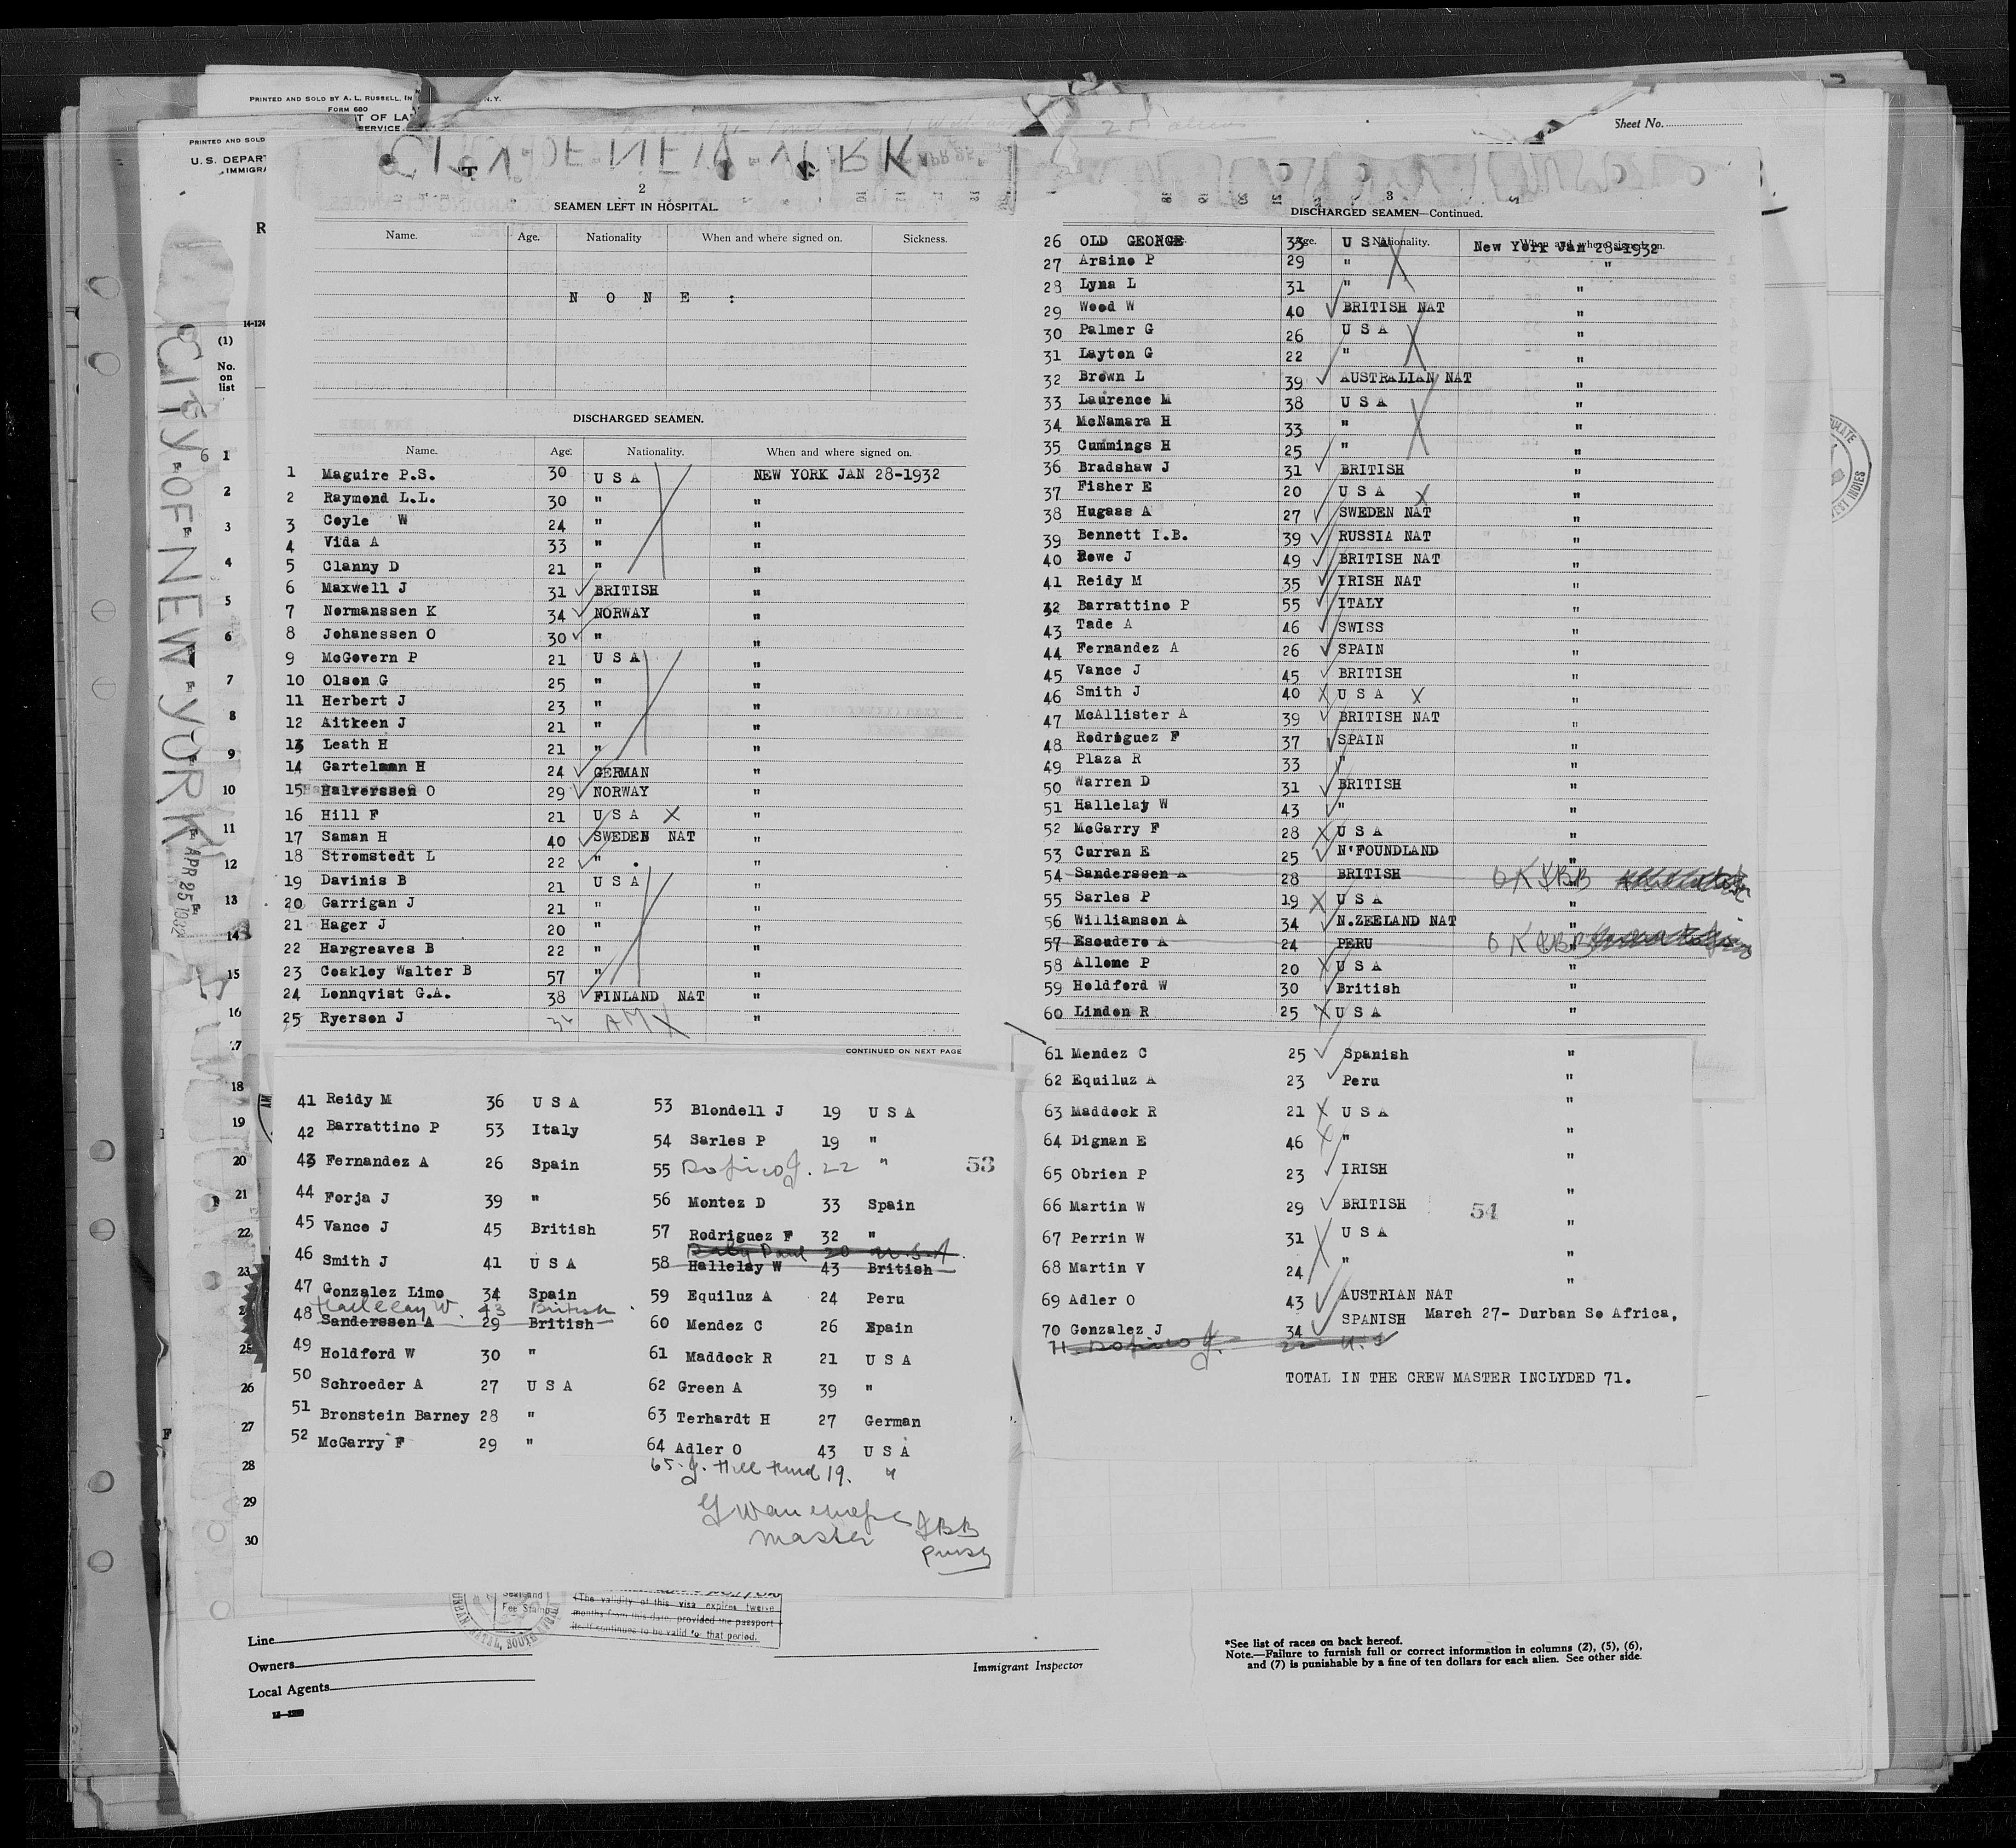 PRINTED AND SOLD BY A. L. RUSSELL, IN N.Y.
FORM 680
T OF LA
SERVICE
PRINTED AND SOLD
U.S. DEPAR
IMMIGRA
Sheet No.
CITY OF NEW YORK
CITY OF NEW YORK APR 25 1932
14-124
(1)
No.
on
list
2
SEAMEN LEFT IN HOSPITAL.
Name. Age. Nationality When and where signed on. Sickness.
N O N E :
DISCHARGED SEAMEN.
Name. Age. Nationality. When and where signed on.
1 Maguire P.S. 30 U S A NEW YORK JAN 28-1932
2 Raymond L.L. 30 " "
3 Coyle W 24 " "
4 Vida A 33 " "
5 Clanny D 21 " "
6 Maxwell J 31 BRITISH "
7 Normanssen K 34 NORWAY "
8 Johanessen O 30 " "
9 McGovern P 21 U S A "
10 Olson G 25 " "
11 Herbert J 23 " "
12 Aitkeen J 21 " "
13 Leath H 21 " "
14 Gartelman H 24 GERMAN "
15 Halverssen O 29 NORWAY "
16 Hill F 21 U S A X "
17 Saman H 40 SWEDEN NAT "
18 Stromstedt L 22 " "
19 Davinis B 21 U S A "
20 Garrigan J 21 " "
21 Hager J 20 " "
22 Hargreaves B 22 " "
23 Coakley Walter B 57 " "
24 Lonnqvist G.A. 38 FINLAND NAT "
25 Ryerson J 32 AM X "
CONTINUED ON NEXT PAGE
3
DISCHARGED SEAMEN—Continued.
Age. Nationality. When and where signed on.
26 OLD GEORGE 33 U S A New York Jan 28-1932
27 Arsino P 29 " "
28 Lyna L 31 " "
29 Wood W 40 BRITISH NAT "
30 Palmer G 26 U S A "
31 Layton G 22 " "
32 Brown L 39 AUSTRALIAN NAT "
33 Laurence M 38 U S A "
34 McNamara H 33 " "
35 Cummings H 25 " "
36 Bradshaw J 31 BRITISH "
37 Fisher E 20 U S A X "
38 Hugass A 27 SWEDEN NAT "
39 Bennett I.B. 39 RUSSIA NAT "
40 Rowe J 49 BRITISH NAT "
41 Reidy M 35 IRISH NAT "
42 Barrattino P 55 ITALY "
43 Tade A 46 SWISS "
44 Fernandez A 26 SPAIN "
45 Vance J 45 BRITISH "
46 Smith J 40 X U S A X "
47 McAllister A 39 BRITISH NAT "
48 Rodriguez F 37 SPAIN "
49 Plaza R 33 " "
50 Warren D 31 BRITISH "
51 Hallelay W 43 " "
52 McGarry F 28 X U S A "
53 Curran E 25 N'FOUNDLAND "
54 Sanderssen A 28 BRITISH " OK JBB
55 Sarles P 19 X U S A "
56 Williamson A 34 N.ZEELAND NAT "
57 Escudero A 24 PERU " OK JBB
58 Allome P 20 X U S A "
59 Holdford W 30 British "
60 Lindon R 25 X U S A "
61 Mendez C 25 Spanish "
62 Equiluz A 23 Peru "
63 Maddock R 21 X U S A "
64 Dignan E 46 X " "
65 Obrien P 23 IRISH "
66 Martin W 29 BRITISH "
54
67 Perrin W 31 U S A "
68 Martin V 24 " "
69 Adler O 43 AUSTRIAN NAT "
70 Gonzalez J 34 SPANISH March 27- Durban So Africa,
71. Dopico J. 22 U.S
TOTAL IN THE CREW MASTER INCLYDED 71.
41 Reidy M 36 U S A
42 Barrattino P 53 Italy
43 Fernandez A 26 Spain
44 Forja J 39 "
45 Vance J 45 British
46 Smith J 41 U S A
47 Gonzalez Limo 34 Spain
Hallelay W. 43 British
48 Sanderssen A 29 British
49 Holdford W 30 "
50 Schroeder A 27 U S A
51 Bronstein Barney 28 "
52 McGarry F 29 "
53 Blondell J 19 U S A
54 Sarles P 19 "
55 Dopico J. 22 "
53
56 Montez D 33 Spain
57 Rodriguez F 32 "
Paul 20 U.S.A.
58 Hallelay W 43 British
59 Equiluz A 24 Peru
60 Mendez C 26 Spain
61 Maddock R 21 U S A
62 Green A 39 "
63 Terhardt H 27 German
64 Adler O 43 U S A
65. J. Hill 19. "
master
JBB
Purser
1
2
3
4
5
6
7
8
9
10
11
12
13
14
15
16
17
18
19
20
21
22
23
25
26
27
28
29
30
Seal and
Fee Stamp
The validity of this visa expires twelve
months from this date, provided the passport
itself continues to be valid for that period.
Line
Owners
Local Agents
Immigrant Inspector
*See list of races on back hereof.
Note.—Failure to furnish full or correct information in columns (2), (5), (6),
and (7) is punishable by a fine of ten dollars for each alien. See other side.